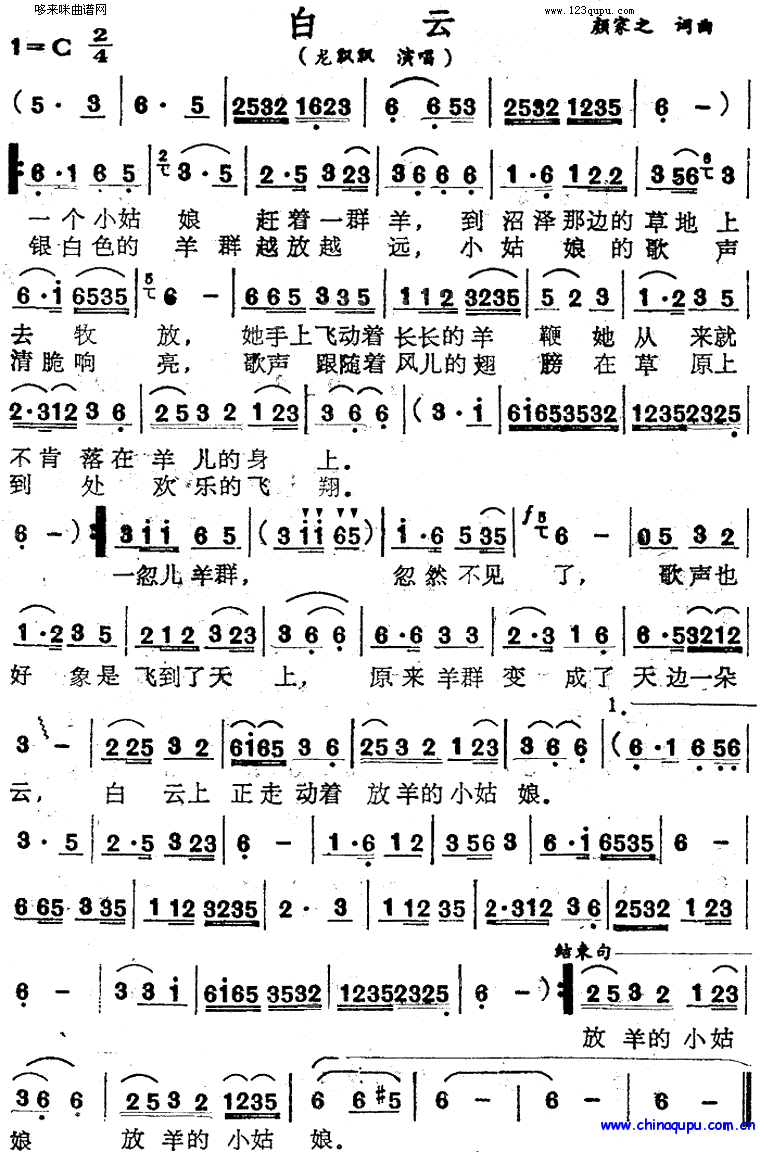 哆来咪曲谱网
www.123qupu.com
白 云
1=C 2/4
(龙飘飘 演唱)
颜家之 词曲
(5· 3 | 6· 5 | 2532 1623 | 6 6 53 | 2532 1235 | 6 -)
6·1 6 5 | 3·5 | 2·5 3 23 | 3 6 6 | 1·6 1 2 2 | 3 56 3
一个小姑 娘 赶着一群羊, 到沼泽那边的草地上
银白色的 羊群越放越 远, 小姑 娘的歌声
6·i 6535 | 6 - | 6 65 3 35 | 1 12 3235 | 5 2 3 | 1·23 5
去 牧 放, 她手上飞动着长长的羊 鞭她从来就
清脆响 亮, 歌声 跟随着风儿的翅 膀在草原上
2·312 3 6 | 2 5 3 2 1 23 | 3 6 6 | (3· i | 6i653532 | 12352325
不肯 落在羊 儿的身 上.
到 处 欢 乐的飞 翔.
6 -) | 3 i i 6 5 | (3 i i 6 5) | i·6 5 35 | 6 - | 05 3 2
一忽儿羊群, 忽然不见 了, 歌声也
1·23 5 | 2 1 2 3 23 | 3 6 6 | 6·6 3 3 | 2·3 1 6 | 6·53212
好 象是飞到了天 上, 原来羊群变 成了天边一朵
1.
3 - | 2 25 3 2 | 6i65 3 6 | 25 3 2 1 23 | 3 6 6 | (6·1 6 56
云, 白 云上 正走动着 放羊的小姑 娘.
3· 5 | 2·5 3 23 | 6 - | 1·6 1 2 | 3 56 3 | 6·i 6535 | 6 -
6 65 3 35 | 1 12 3235 | 2· 3 | 1 12 35 | 2·312 3 6 | 2532 1 23
结束句
6 - | 3 3 i | 6i65 3532 | 12352325 | 6 -) | 2 5 3 2 1 23
放羊的小姑
3 6 6 | 2 5 3 2 1235 | 6 6 #5 | 6 - | 6 -
www.chinaqupu.com.cn
娘 放羊的小姑 娘.